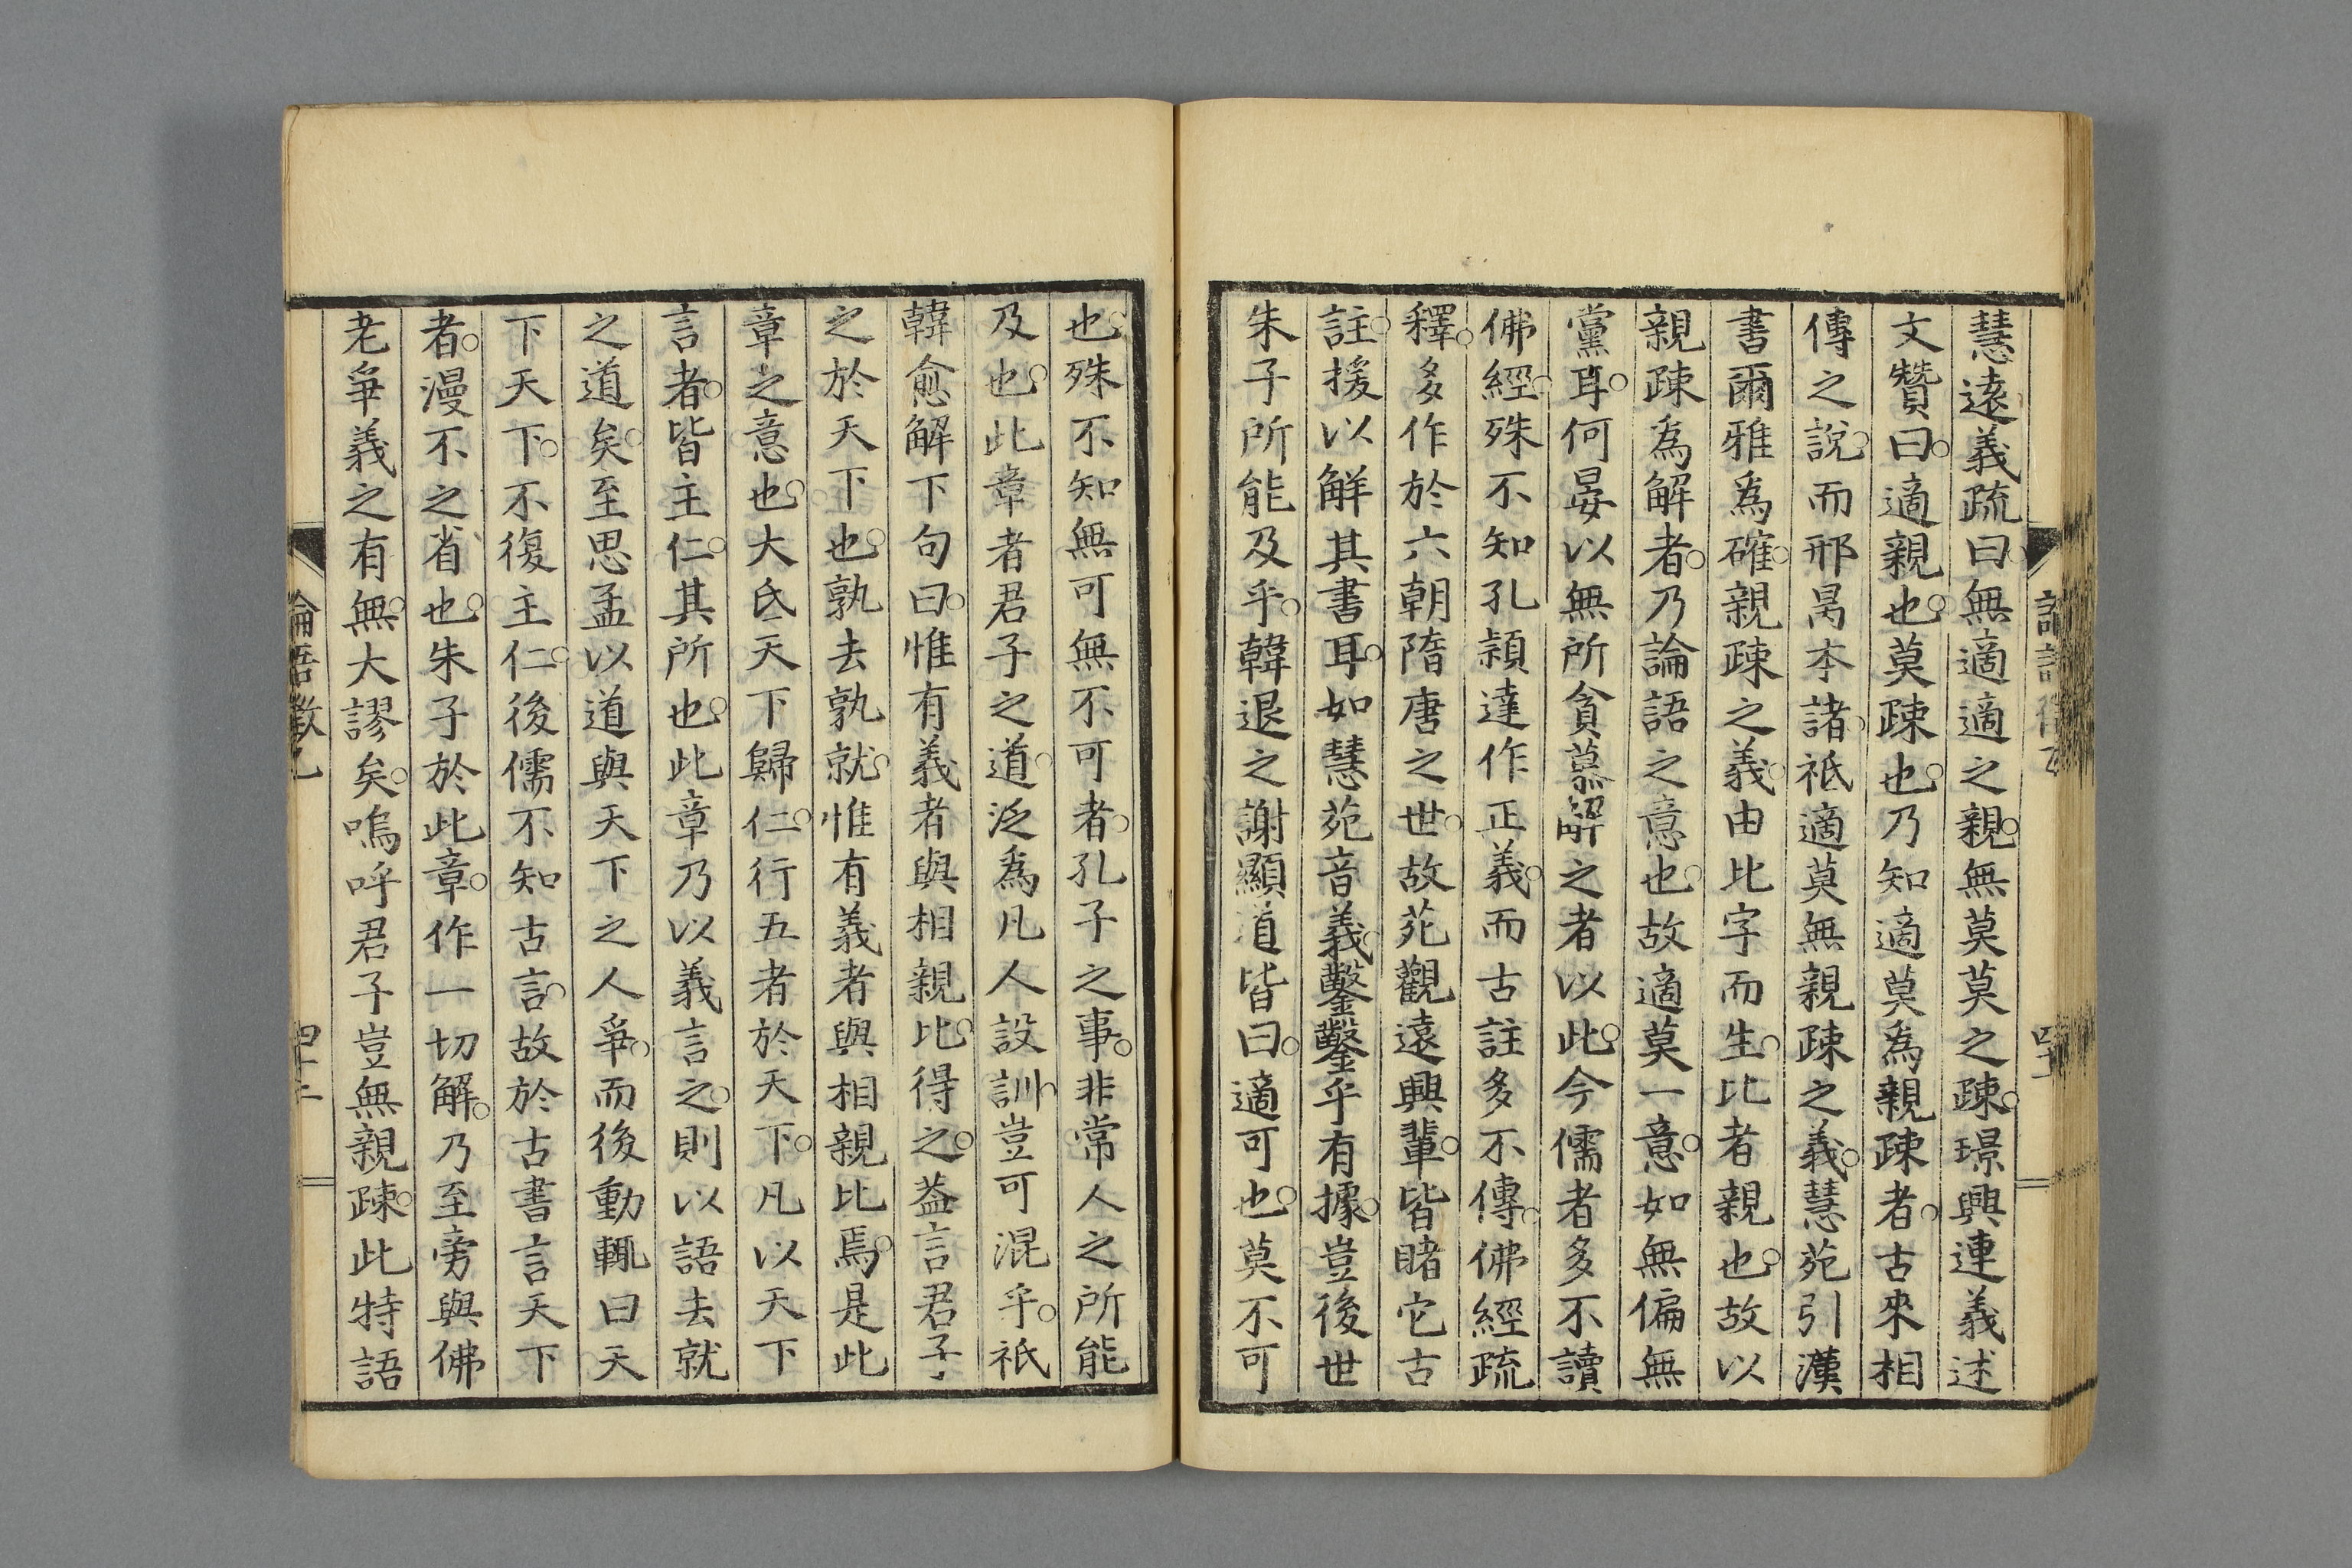 慧遠義疏曰無適適之親無莫莫之疎璟興連義述
文贊曰適親也莫疎也乃知適莫為親疎者古來相
傳之說而邢昺本諸祗適莫無親疎之義慧苑引漢
書爾雅為確親疎之義由比字而生比者親也故以
親疎為解者乃論語之意也故適莫一意如無偏無
黨耳何晏以無所貪慕解之者以此今儒者多不讀
佛經殊不知孔穎達作正義而古註多不傳佛經疏
釋多作於六朝隋唐之世故苑觀遠興輩皆睹它古
註援以解其書耳如慧苑音義鑿鑿乎有據豈後世
朱子所能及乎韓退之謝顯道皆曰適可也莫不可
也殊不知無可無不可者孔子之事非常人之所能
及也此章者君子之道泛為凡人設訓豈可混乎祇
韓愈解下句曰惟有義者與相親比得之益言君子
之於天下也孰去孰就惟有義者與相親比焉是此
章之意也大氐天下歸仁行五者於天下凡以天下
言者皆主仁其所也此章乃以義言之則以語去就
之道矣至思孟以道與天下之人爭而後動輒曰天
下天下不復主仁後儒不知古言故於古書言天下
者漫不之省也朱子於此章作一切解乃至旁與佛
老爭義之有無大謬矣嗚呼君子豈無親疎此特語
論語徵乙